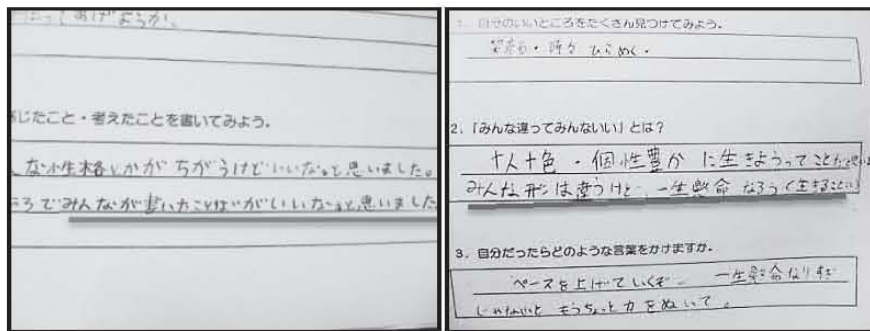 てあげようか。
じたこと・考えたことを書いてみよう。
な性格とかがちがうけどいいなと思いました。
ろでみんなが書いたことばがいいなと思いました
1. 自分のいいところをたくさん見つけてみよう。
笑顔・時々ひらめく・
2. 「みんな違ってみんないい」とは?
十人十色・個性豊かに生きようってことだと思い
みんな形は違うけど、一生懸命なろう(生きること
3. 自分だったらどのような言葉をかけますか。
ペースを上げていくぞ 一生懸命なりすぎ
じゃないともうちょっと力をぬいて。